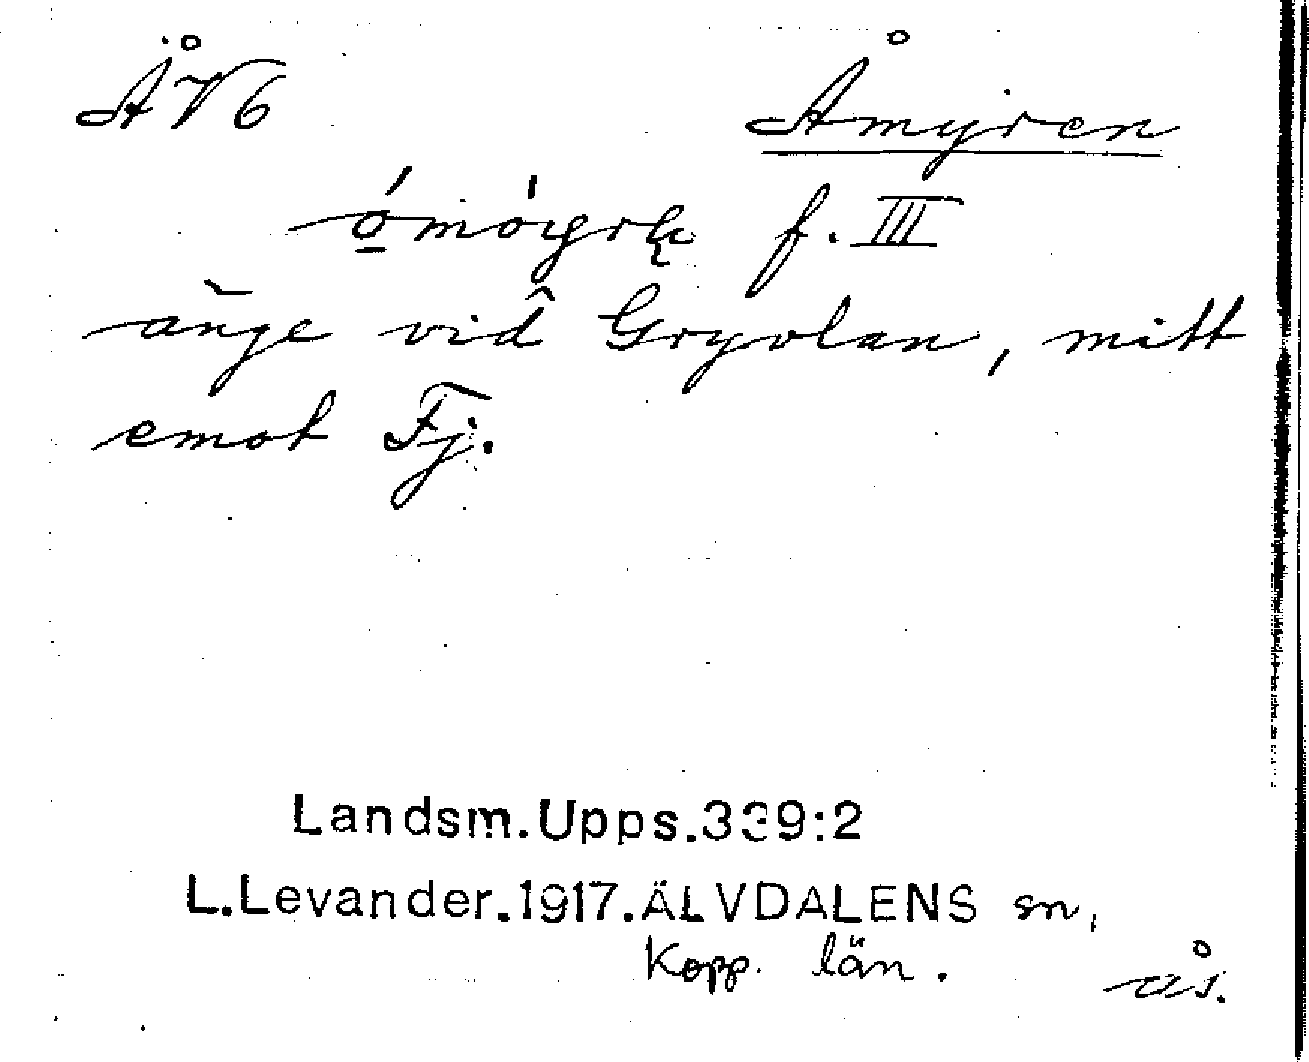 ÅV6 Åmyren
f. III
änge vid Gryvlan, mitt
emot Fj.
Landsm.Upps.339:2
L.Levander.1917.ÄLVDALENS sn,
Kopp. län. ås.